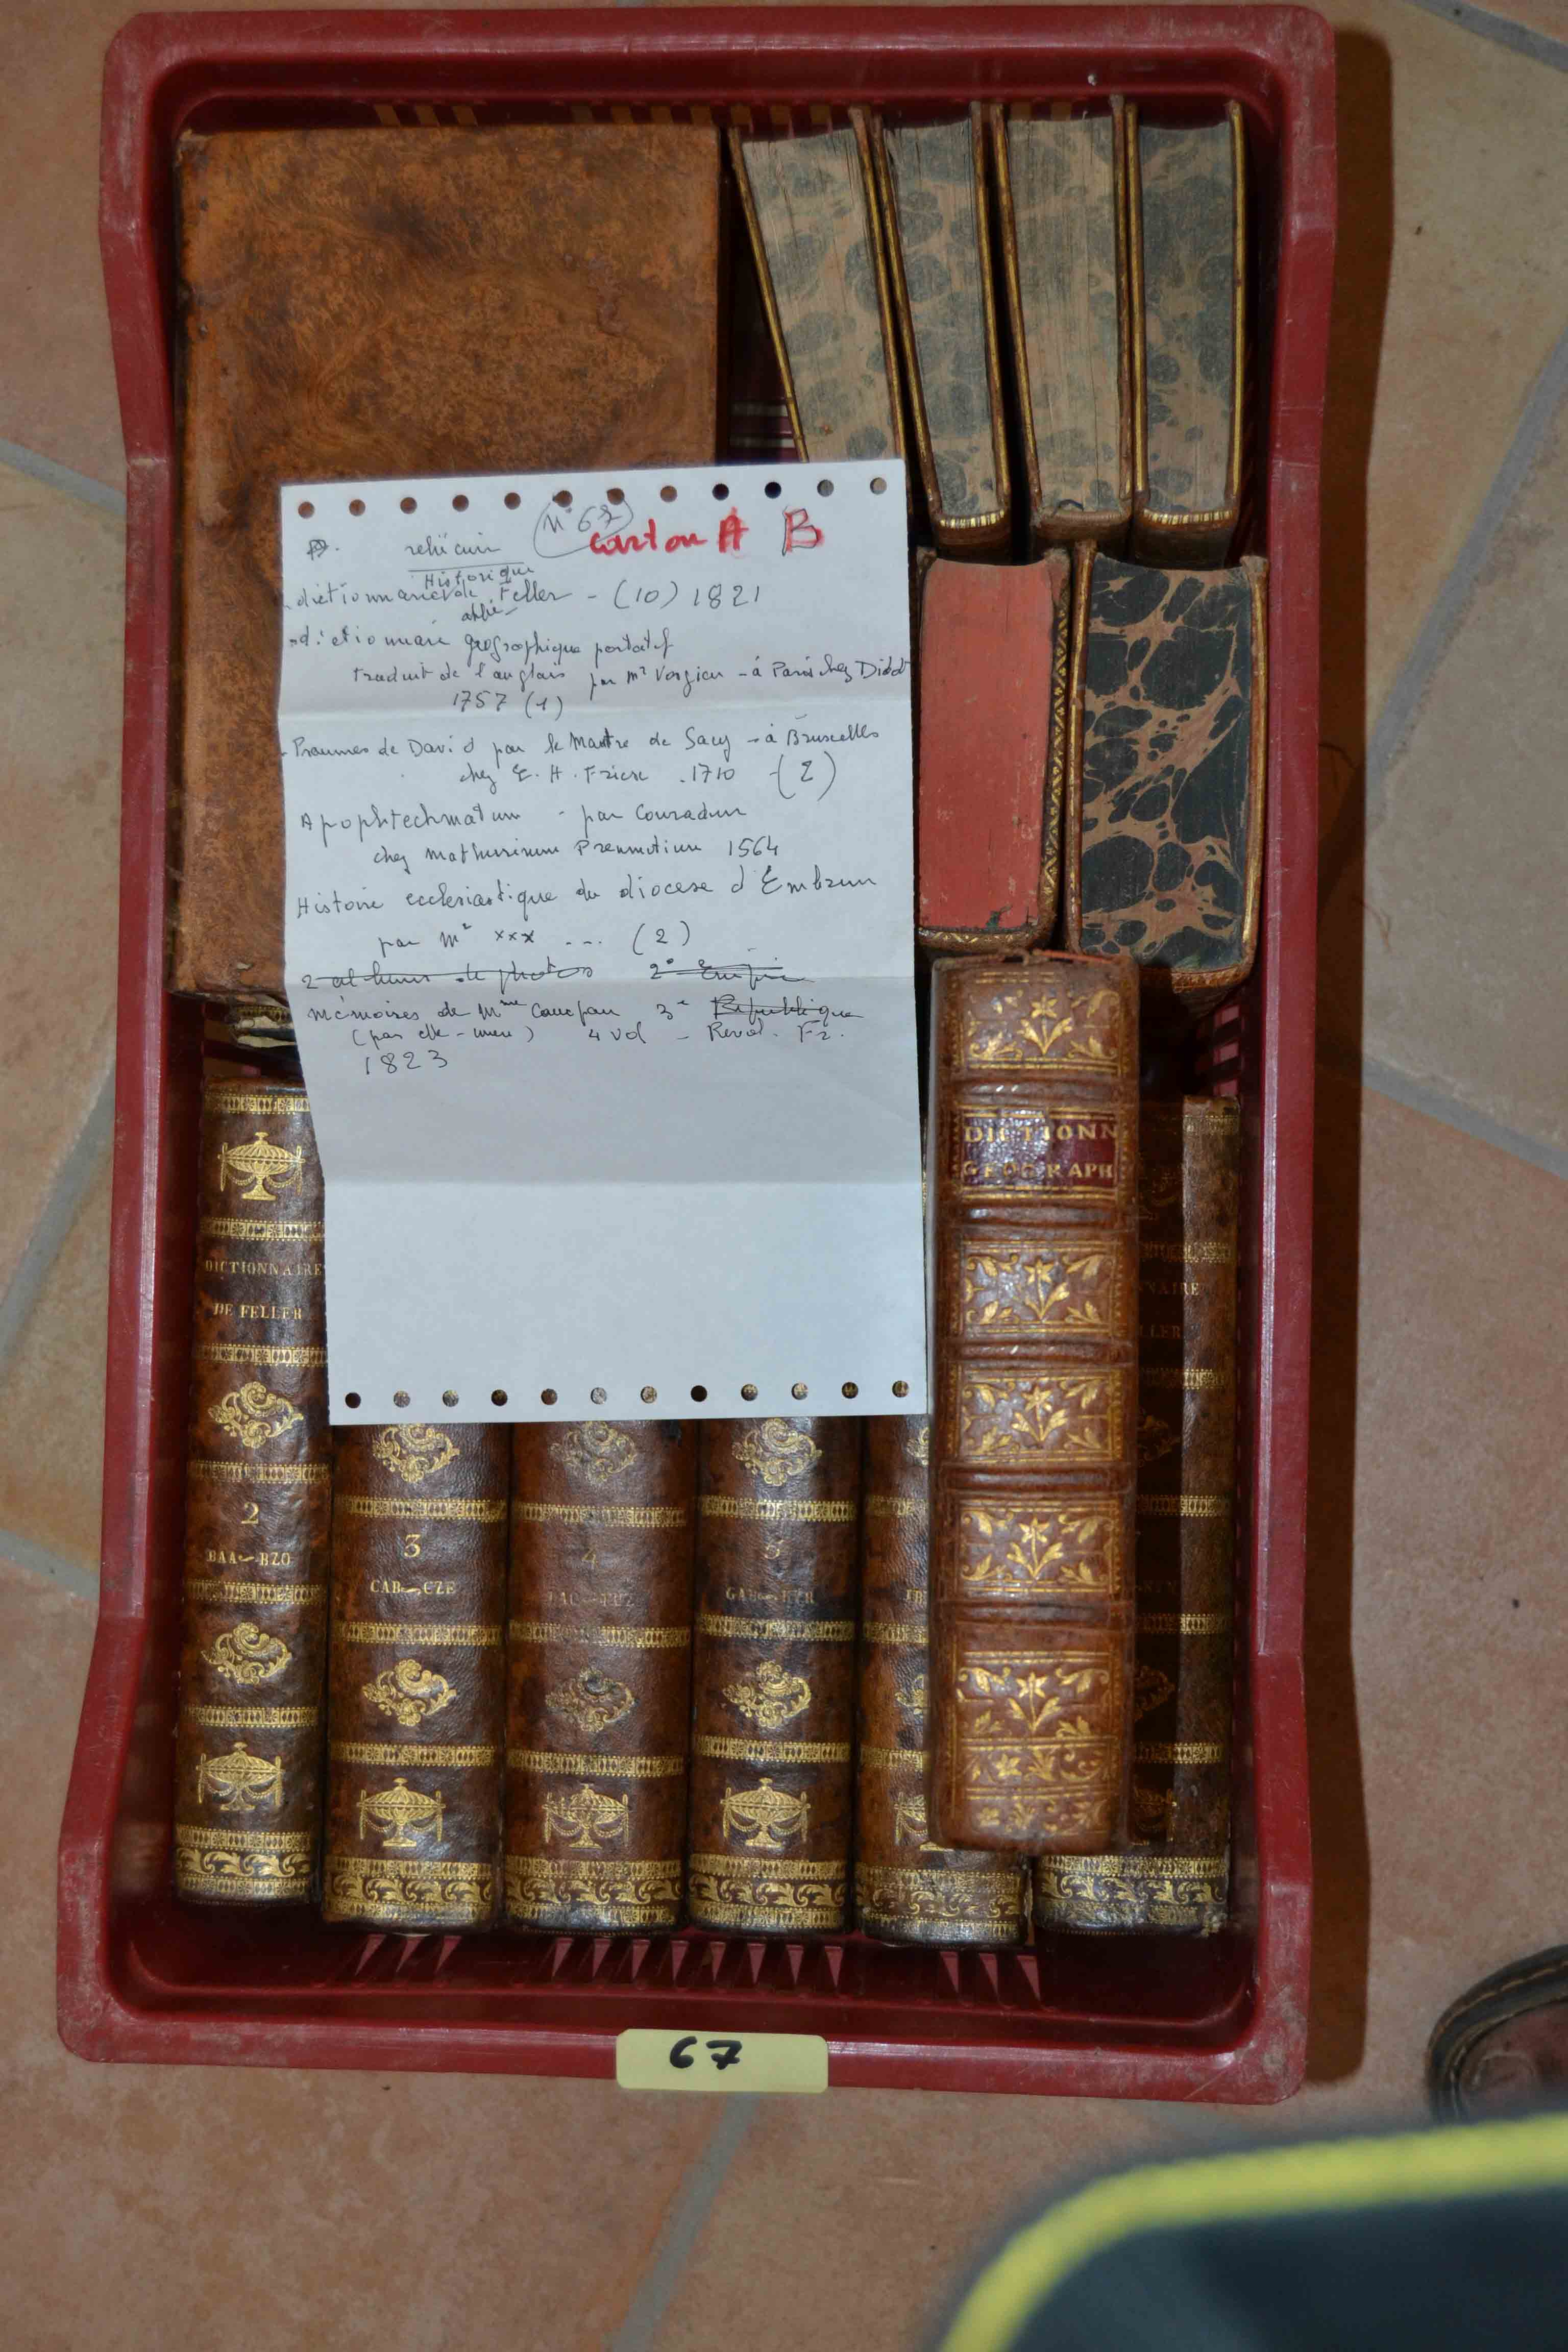 N° 67
carton A B
Historique
dictionnaire de Feller - (10) 1821
abbé
dictionnaire géographique portatif
traduit de l'anglais par mr Vosgien - à Paris chez Didot
1757 (1)
- Psaumes de David par le Maitre de Sacy - à Bruxelles
chez E. H. Fricx . 1710 - (2)
Apophtechmatum - par
chez mathurinum 1564
Histoire ecclesiastique du diocese d'Embrun
par mr xxx ... (2)
2 albums de photos 2° Empire
Mémoires de Mme Campan 3e République
(par elle-meme) 4 vol - Revol. Fr.
1823
DICTIONN
GEOGRAPH
DICTIONNAIRE
DE FELLER
2
BAA-BZO
3
CAB-CZE
4
5
NAIRE
LLER
67